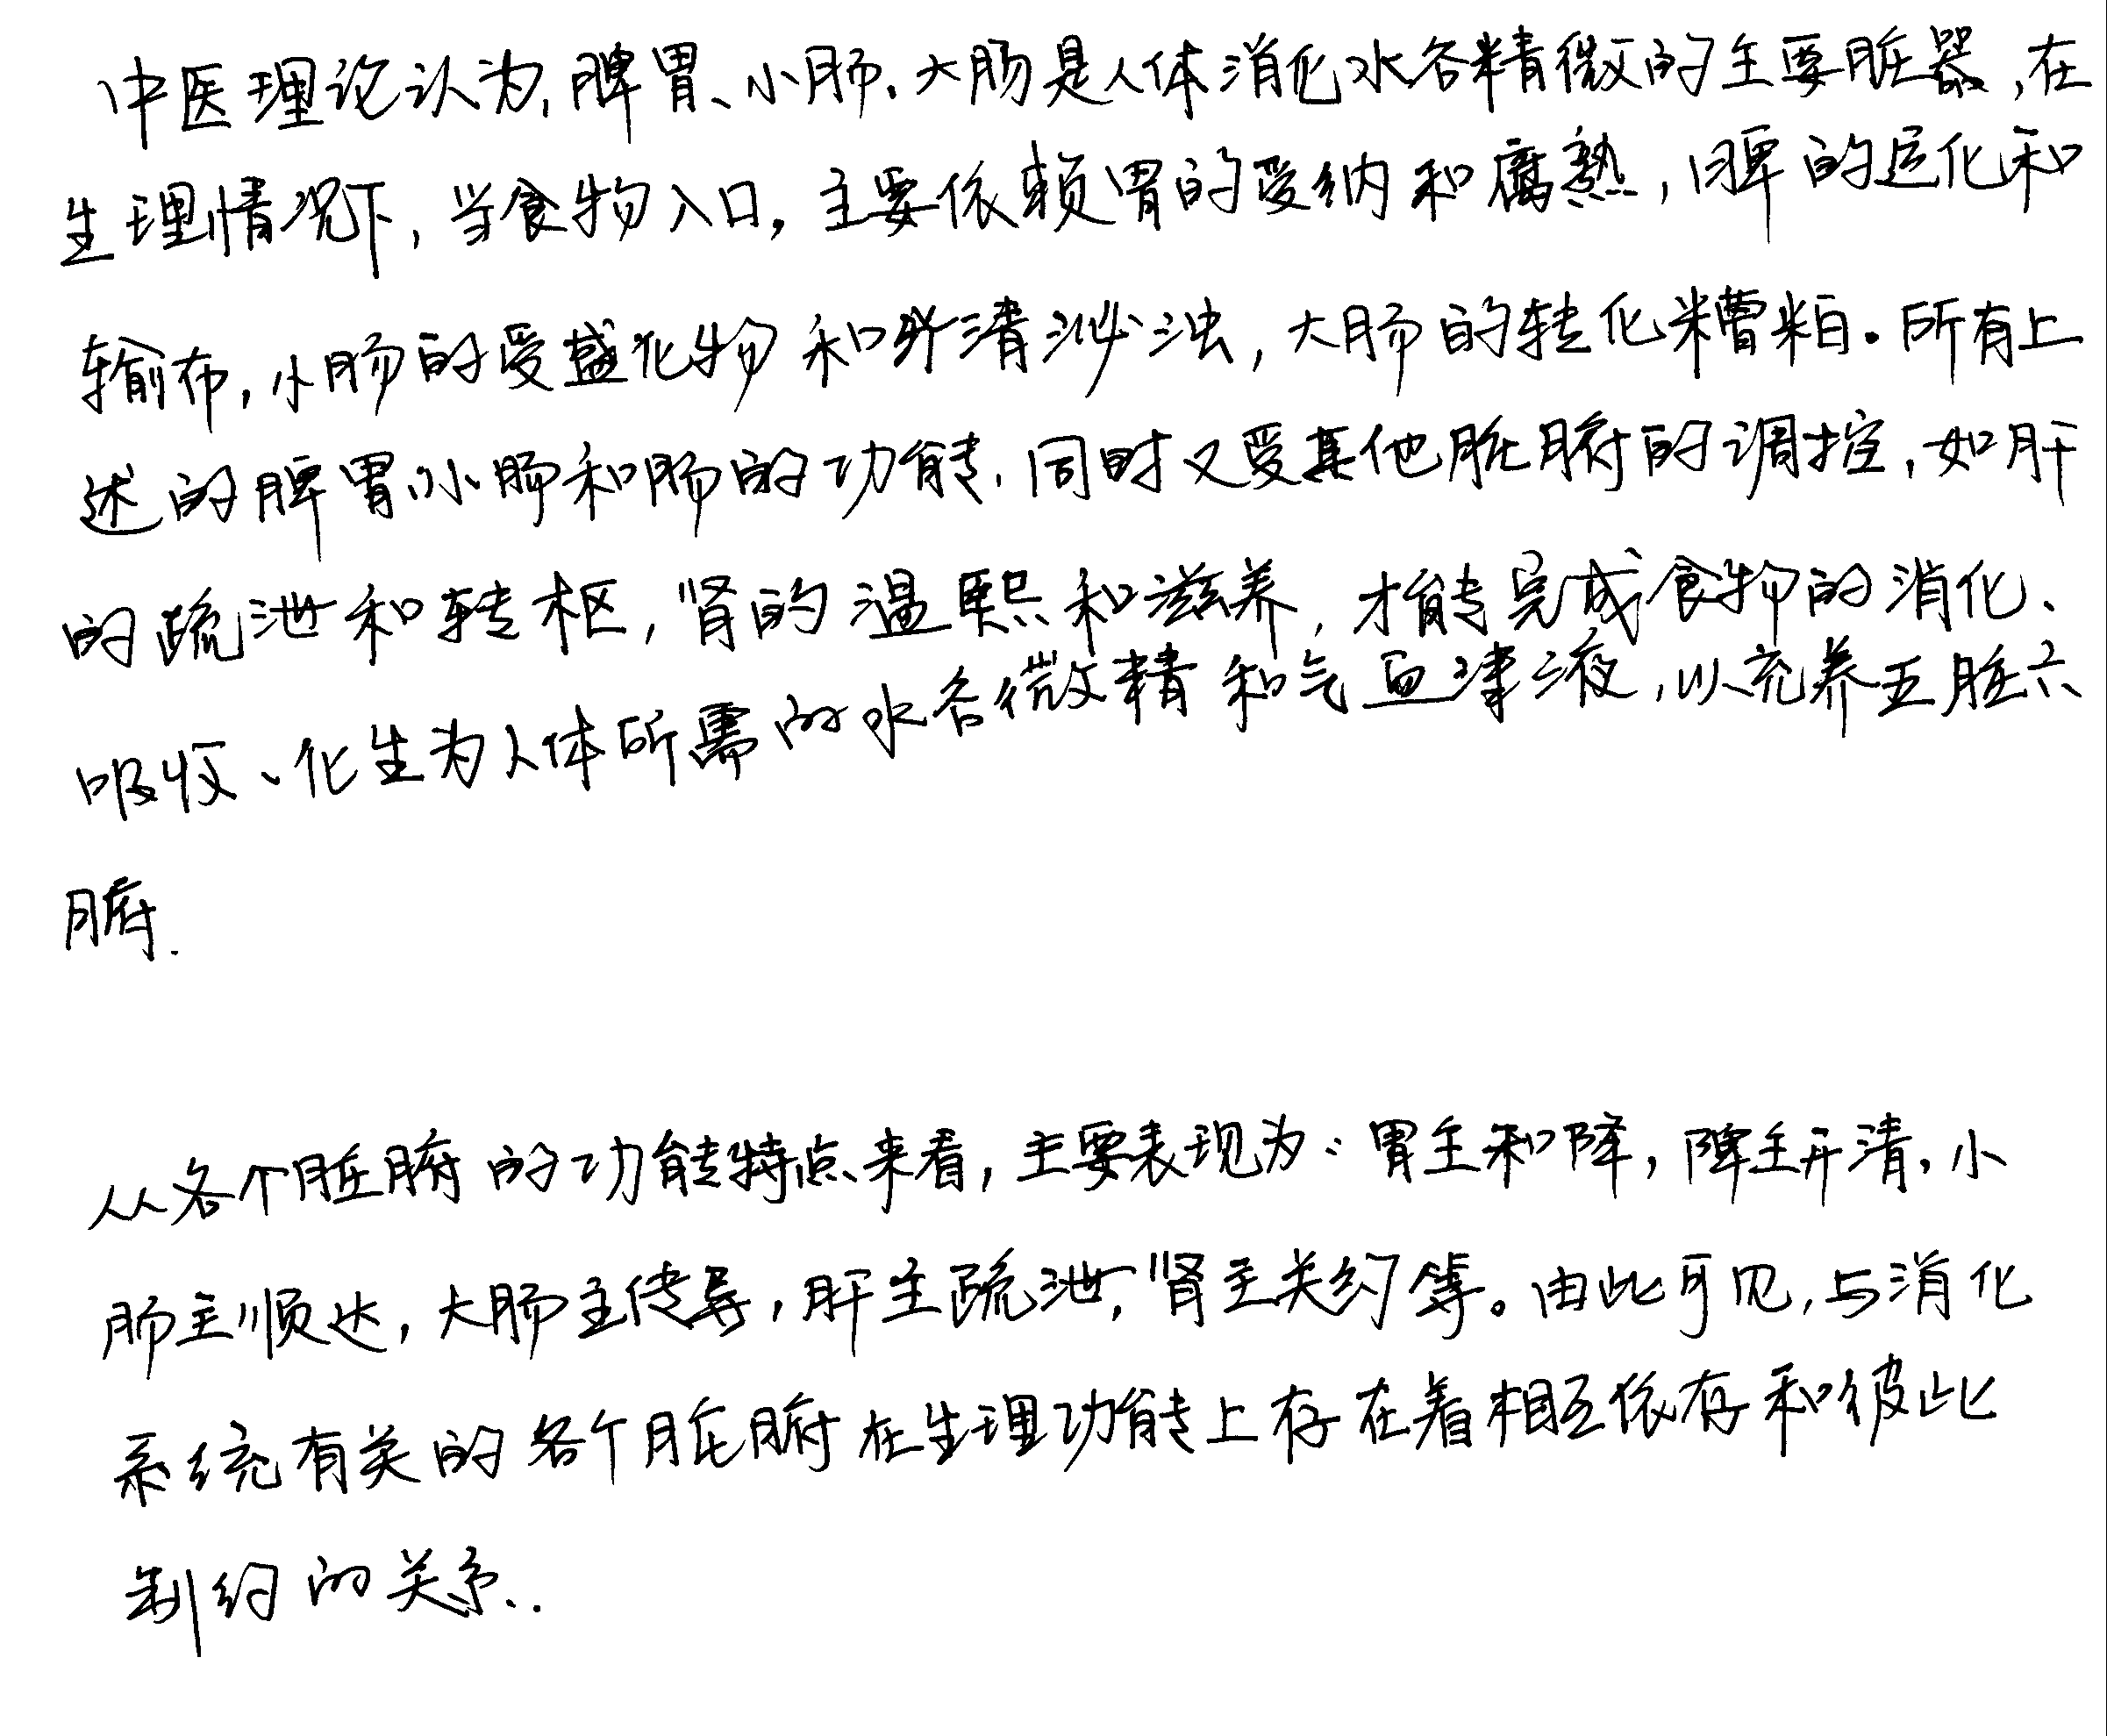 中医理论认为,脾胃、小肠、大肠是人体消化水谷精微的主要脏器,在
生理情况下,当食物入口,主要依赖胃的受纳和腐熟,脾的运化和
输布,小肠的受盛化物和升清泌浊,大肠的转化糟粕。所有上
述的脾胃、小肠和肠的功能,同时又受其他脏腑的调控,如肝
的疏泄和转枢,肾的温熙和滋养,才能完成食物的消化、
吸收、化生为人体所需的水谷微精和气血津液,以充养五脏六
腑.
从各个脏腑的功能特点来看,主要表现为:胃主和降,脾主升清,小
肠主顺达,大肠主传导,肝主疏泄,肾主关约等。由此可见,与消化
系统有关的各个脏腑在生理功能上存在着相互依存和彼此
制约的关系.